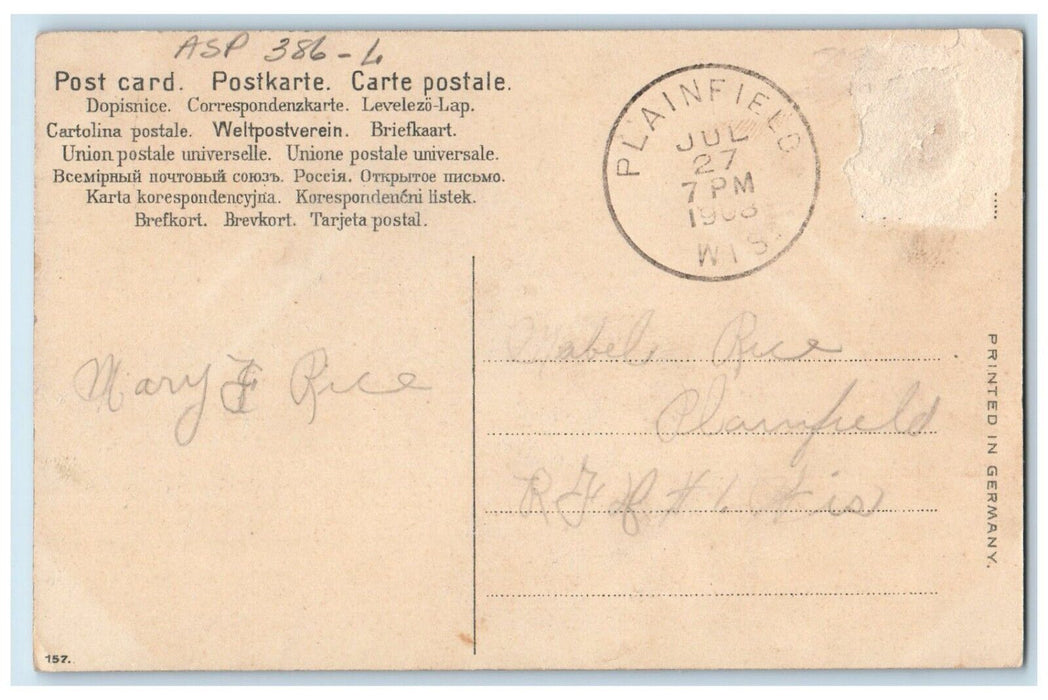 ASP 386-L
Post card. Postkarte. Carte postale.
Dopisnice. Correspondenzkarte. Levelező-Lap.
Cartolina postale. Weltpostverein. Briefkaart.
Union postale universelle. Unione postale universale.
Всемірный почтовый союзъ. Россія. Открытое письмо.
Karta korespondencyjna. Korespondenčni listek.
Brefkort. Brevkort. Tarjeta postal.
PLAINFIELD
JUL
27
7 PM
1908
WIS.
Mary F Rice
Mabel Rice
Plainfield
R F D # 1 Wis
PRINTED IN GERMANY.
157.